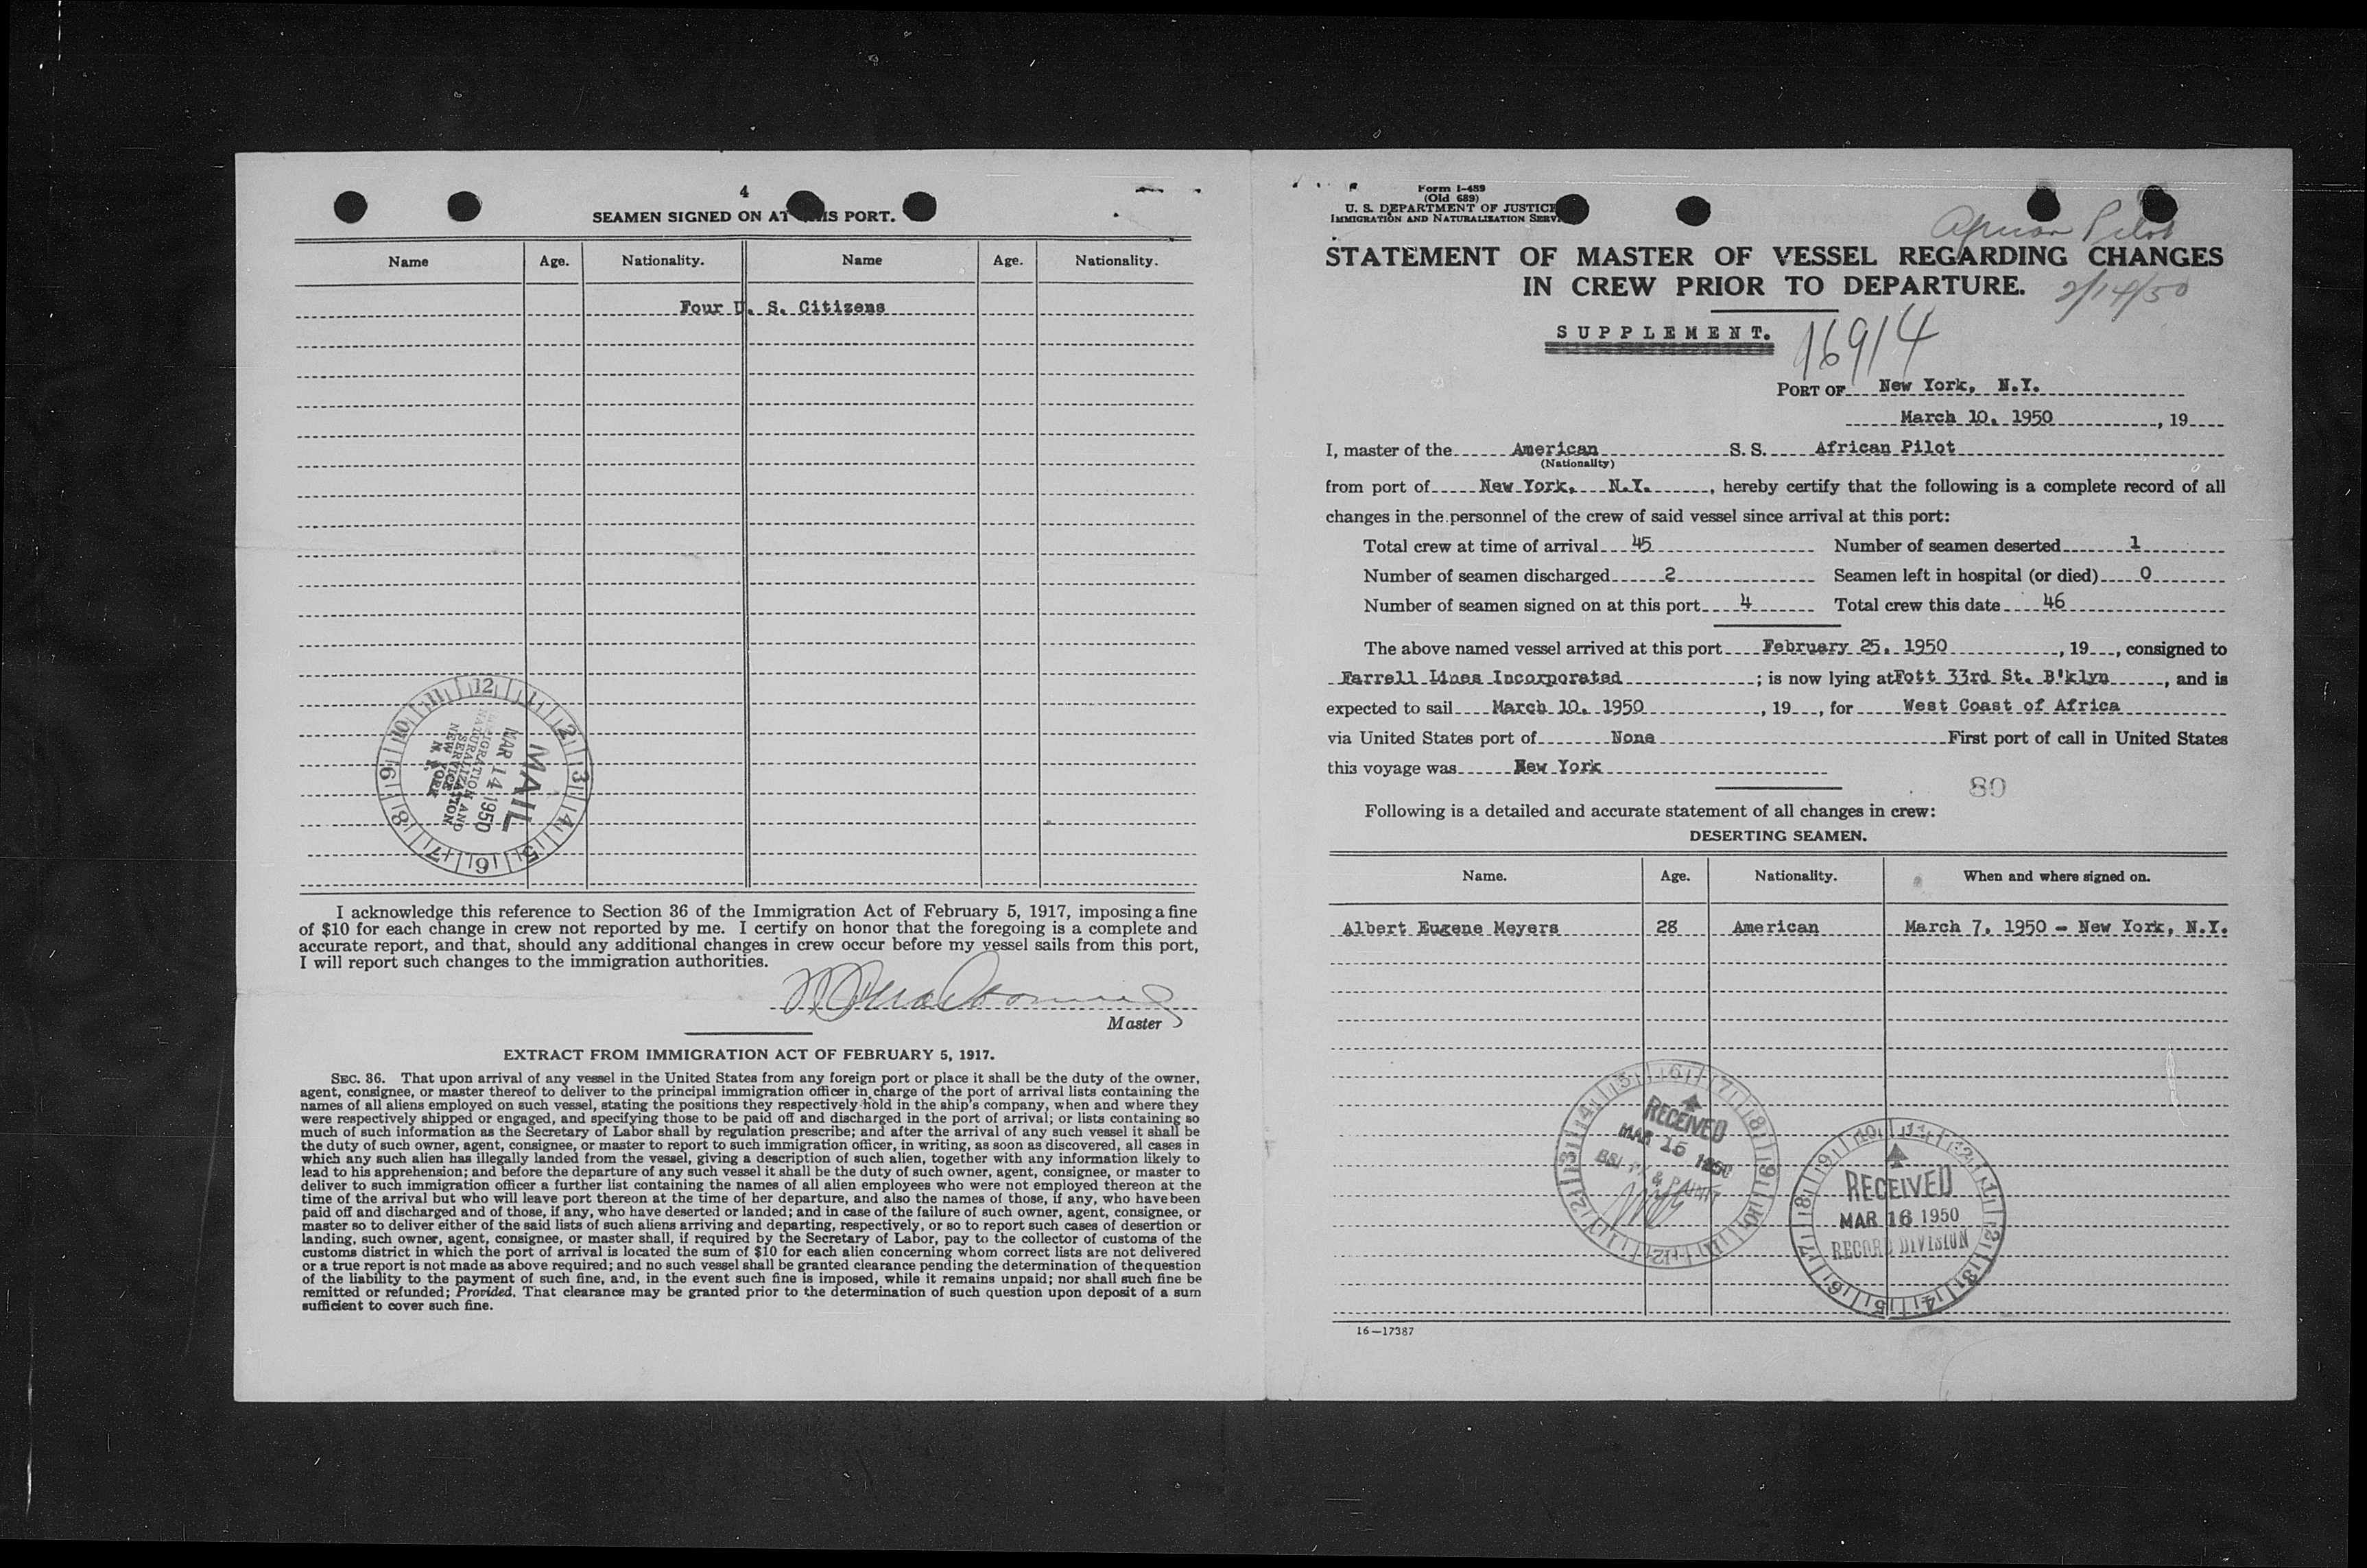 4
SEAMEN SIGNED ON AT THIS PORT.
Name Age. Nationality. Name Age. Nationality.
Four U. S. Citizens
12 1 2 3 4 5 6 7 8 9 10 11
MAIL
MAR 14 1950
IMMIGRATION AND
NATURALIZATION
SERVICE
NEW YORK
N. Y.
I acknowledge this reference to Section 36 of the Immigration Act of February 5, 1917, imposing a fine
of $10 for each change in crew not reported by me. I certify on honor that the foregoing is a complete and
accurate report, and that, should any additional changes in crew occur before my vessel sails from this port,
I will report such changes to the immigration authorities.
Master
EXTRACT FROM IMMIGRATION ACT OF FEBRUARY 5, 1917.
SEC. 36. That upon arrival of any vessel in the United States from any foreign port or place it shall be the duty of the owner,
agent, consignee, or master thereof to deliver to the principal immigration officer in charge of the port of arrival lists containing the
names of all aliens employed on such vessel, stating the positions they respectively hold in the ship's company, when and where they
were respectively shipped or engaged, and specifying those to be paid off and discharged in the port of arrival; or lists containing so
much of such information as the Secretary of Labor shall by regulation prescribe; and after the arrival of any such vessel it shall be
the duty of such owner, agent, consignee, or master to report to such immigration officer, in writing, as soon as discovered, all cases in
which any such alien has illegally landed from the vessel, giving a description of such alien, together with any information likely to
lead to his apprehension; and before the departure of any such vessel it shall be the duty of such owner, agent, consignee, or master to
deliver to such immigration officer a further list containing the names of all alien employees who were not employed thereon at the
time of the arrival but who will leave port thereon at the time of her departure, and also the names of those, if any, who have been
paid off and discharged and of those, if any, who have deserted or landed; and in case of the failure of such owner, agent, consignee, or
master so to deliver either of the said lists of such aliens arriving and departing, respectively, or so to report such cases of desertion or
landing, such owner, agent, consignee, or master shall, if required by the Secretary of Labor, pay to the collector of customs of the
customs district in which the port of arrival is located the sum of $10 for each alien concerning whom correct lists are not delivered
or a true report is not made as above required; and no such vessel shall be granted clearance pending the determination of the question
of the liability to the payment of such fine, and, in the event such fine is imposed, while it remains unpaid; nor shall such fine be
remitted or refunded; Provided, That clearance may be granted prior to the determination of such question upon deposit of a sum
sufficient to cover such fine.
Form I-489
(Old 689)
U. S. DEPARTMENT OF JUSTICE
IMMIGRATION AND NATURALIZATION SERV
African Pilot
STATEMENT OF MASTER OF VESSEL REGARDING CHANGES
IN CREW PRIOR TO DEPARTURE.
2/14/50
SUPPLEMENT.
16914
PORT OF New York, N.Y.
March 10, 1950, 19
I, master of the American S. S. African Pilot
(Nationality)
from port of New York, N.Y., hereby certify that the following is a complete record of all
changes in the personnel of the crew of said vessel since arrival at this port:
Total crew at time of arrival 45 Number of seamen deserted 1
Number of seamen discharged 2 Seamen left in hospital (or died) 0
Number of seamen signed on at this port 4 Total crew this date 46
The above named vessel arrived at this port February 25, 1950, 19, consigned to
Farrell Lines Incorporated; is now lying at Fott 33rd St. B'klyn, and is
expected to sail March 10, 1950, 19, for West Coast of Africa
via United States port of None First port of call in United States
this voyage was New York
80
Following is a detailed and accurate statement of all changes in crew:
DESERTING SEAMEN.
Name. Age. Nationality. When and where signed on.
Albert Eugene Meyers 28 American March 7, 1950 - New York, N.Y.
RECEIVED
MAR 15 1950
RECEIVED
MAR 16 1950
RECORD DIVISION
16—17387